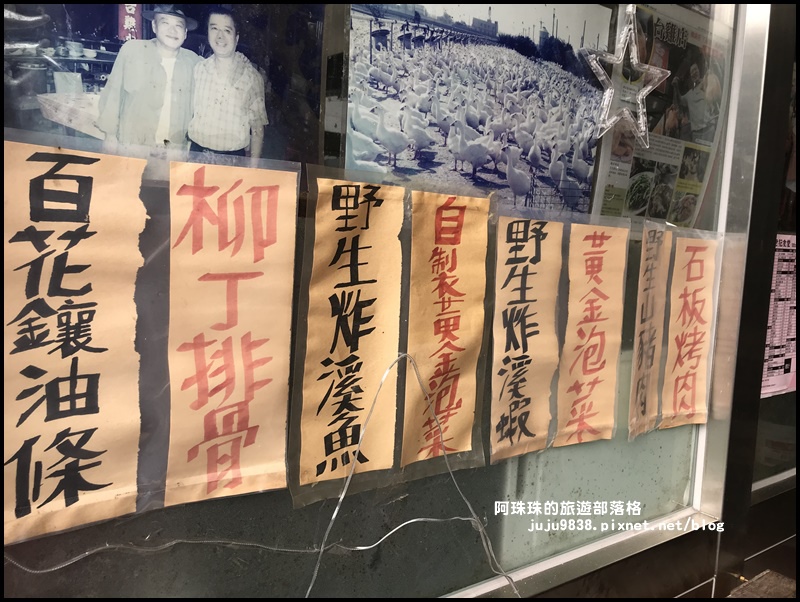 百花鑲油條
柳丁排骨
野生炸溪魚
自製黃金泡菜
野生炸溪蝦
黃金泡菜
野生山豬肉
石板烤肉
阿珠珠的旅遊部落格
juju9838.pixnet.net/blog